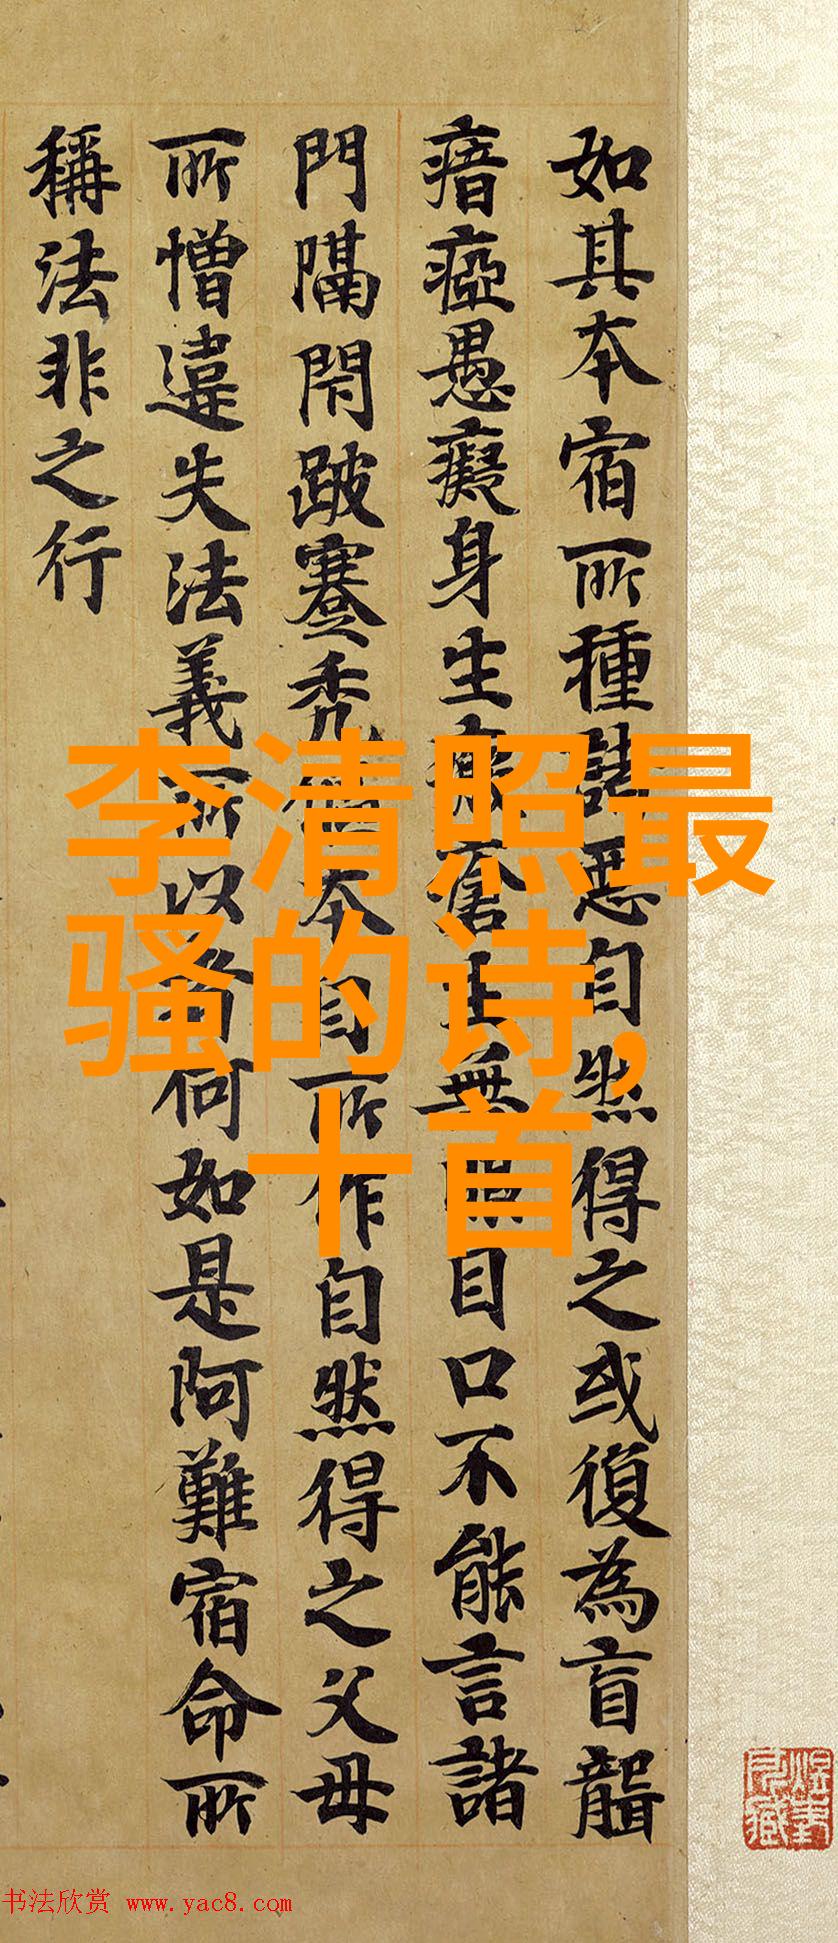 如其本宿所種諸惡自然得之或復為盲聾
瘖瘂愚癡身生瘡主無眼目口不能言諸
門隔閇跛蹇禿本自所作自然得之父母
所憎違失法義所以者何如是阿難宿命所
稱法非之行
李清照最
骚的诗,
十首
书法欣赏 www.yac8.com